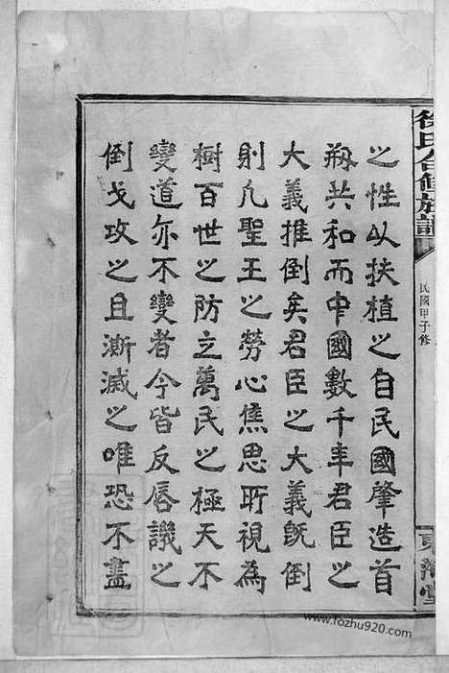 徐氏合修族譜
民國甲子修
東海堂
之性以扶植之自民國肇造首
剏共和而中國數千年君臣之
大義推倒矣君臣之大義旣倒
則凡聖王之勞心焦思所視為
樹百世之防立萬民之極天不
變道亦不變者今皆反唇譏之
倒戈攻之且漸滅之唯恐不盡
www.fozhu920.com